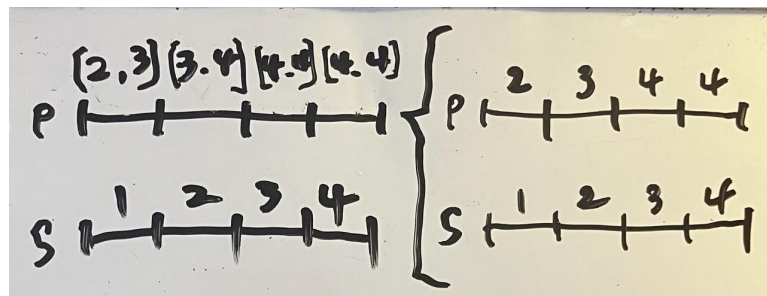 [2,3] [3.4] [4.4] [4.4]
P
1 2 3 4
S
2 3 4 4
P
1 2 3 4
S